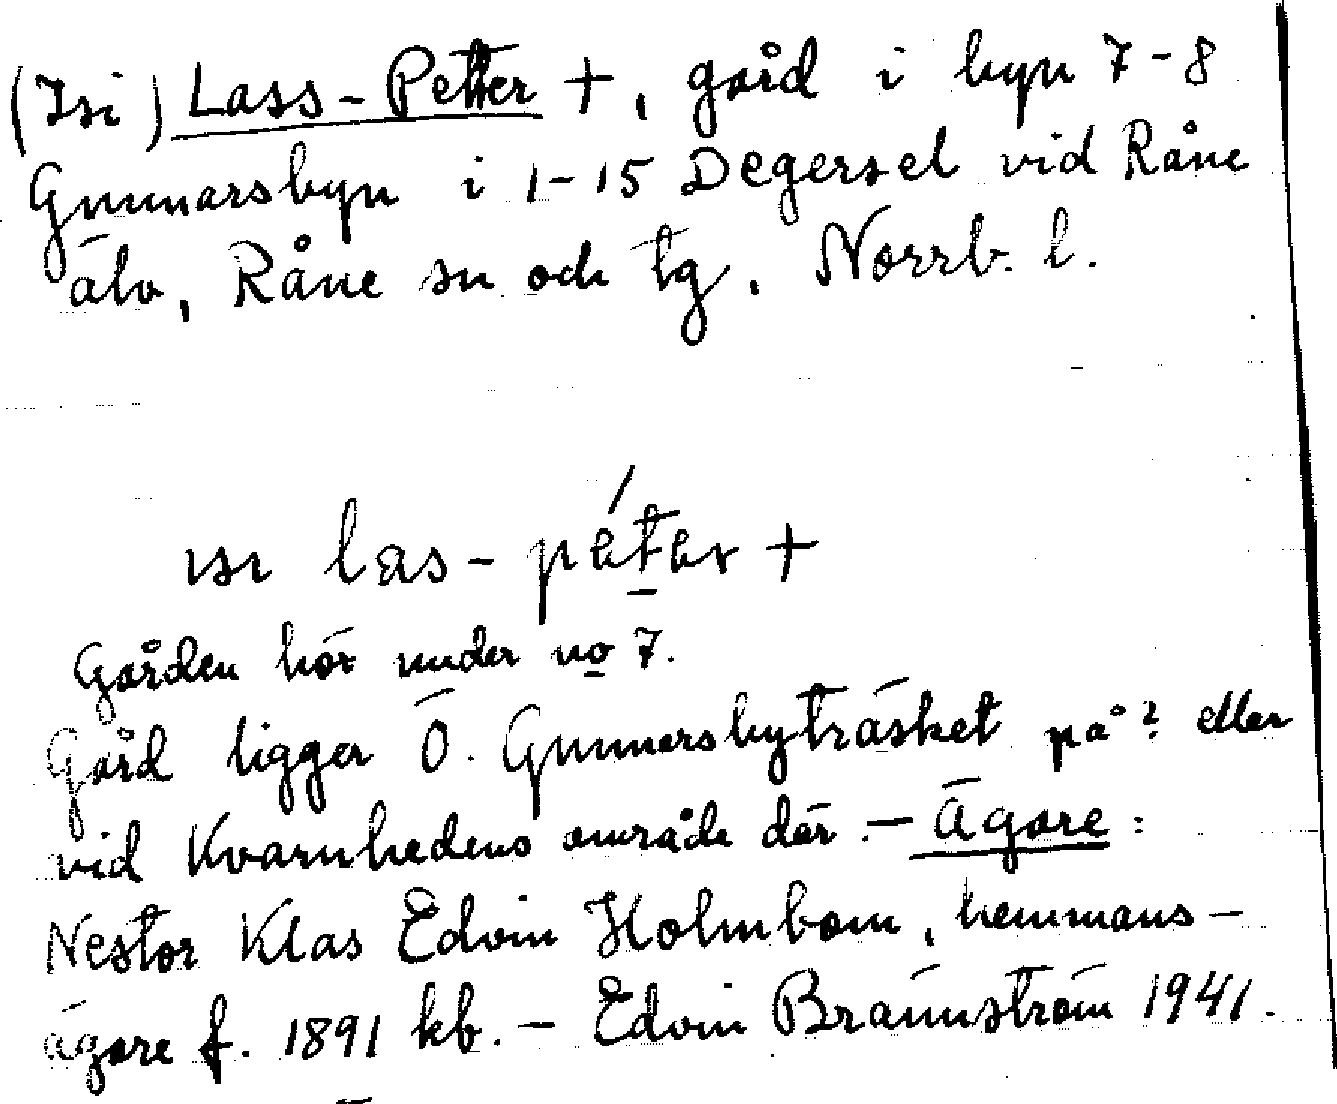 (Isi) Lass-Petter +, gård i byn 7-8
Gunnarsbyn i 1-15 Degersel vid Råne
älv, Råne sn och tg, Norrb. l.
ısı las-péter +
Gården hör under no 7.
Gård ligger Ö. Gunnarsbyträsket på? eller
vid Kvarnhedens område där. - Ägare:
Nestor Klas Edvin Holmbom, hemmans-
ägare f. 1891 kb. - Edvin Brännström 1941.